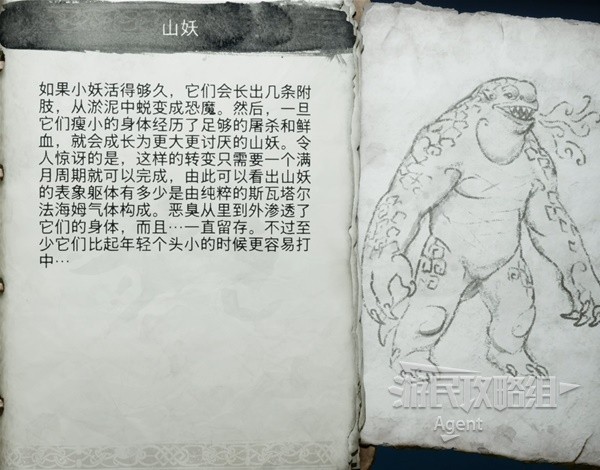 山妖
如果小妖活得够久，它们会长出几条附
肢，从淤泥中蜕变成恐魔。然后，一旦
它们瘦小的身体经历了足够的屠杀和鲜
血，就会成长为更大更讨厌的山妖。令
人惊讶的是，这样的转变只需要一个满
月周期就可以完成，由此可以看出山妖
的表象躯体有多少是由纯粹的斯瓦塔尔
法海姆气体构成。恶臭从里到外渗透了
它们的身体，而且…一直留存。不过至
少它们比起年轻个头小的时候更容易打
中…
游民攻略组
Agent